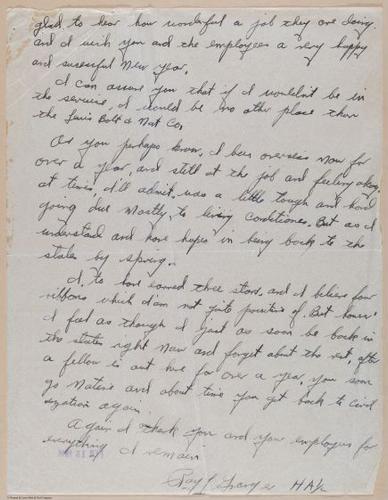 glad to hear how wonderful a job they are doing.
and I wish you and the employees a very happy
and sucessful New Year.
I can assure you that if I wouldn't be in
the service, I would be no other place than
the Lewis Bolt & Nut Co,
As you perhaps know, I been overseas now for
over a year, and still at the job and feeling okay.
at times, I'll admit, was a little tough and hard
going due mostly, to living conditiones. But as I
understand and have hopes in being back to the
states by spring.
I, to have earned three stars, and I believe four
ribbons which I am not quite positive of. But
I feel as though I just as soon be back in
the states right now and forget about the rest, after
a fellow is out here for over a year, you soon
go Native and about time you get back to Civil
ization again.
Again I thank you and you employees for
everything I remain
Ray